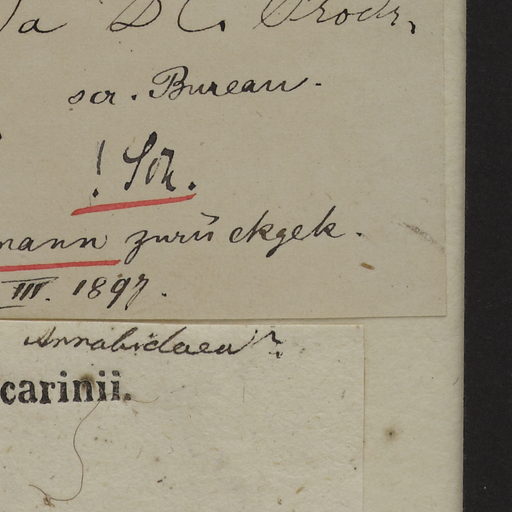 DC. Prodr.
scr. Bureau.
! Sch.
mann zurückgek.
III. 1897.
Arrabidaea?
carinii.